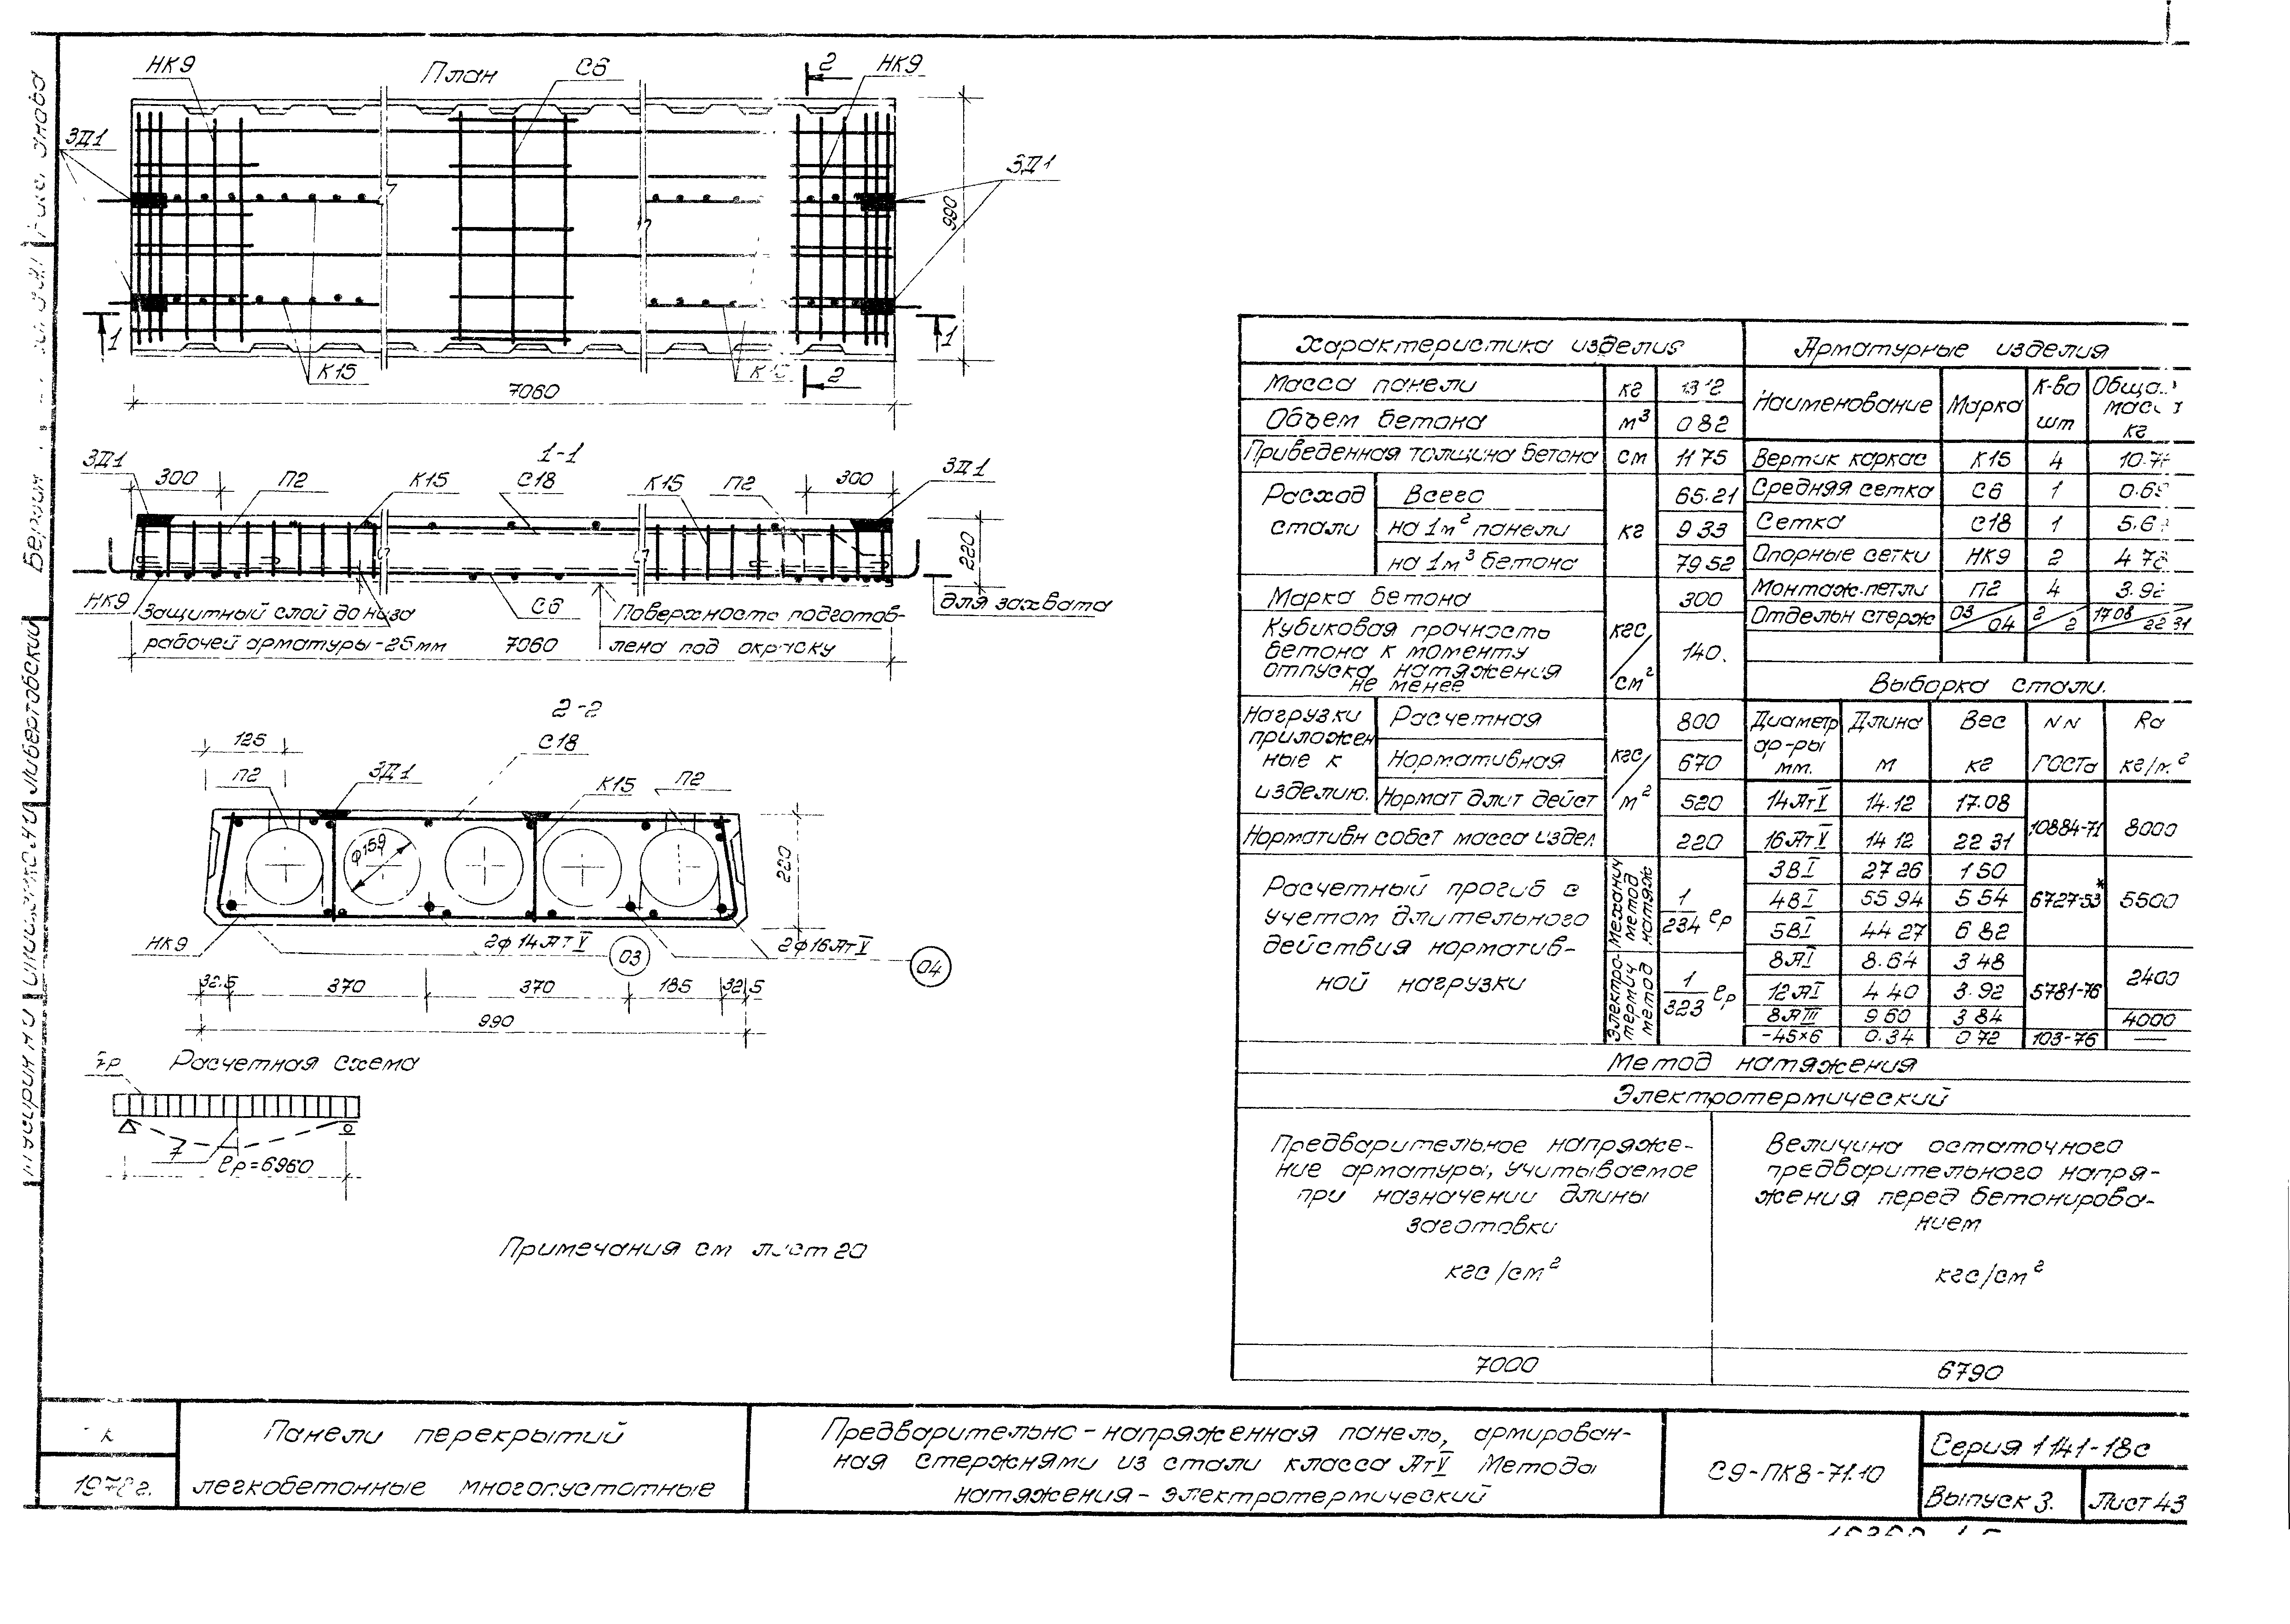 План
НК9
С6
2
НК9
ЗД1
ЗД1
990
1
К15
2
1
7060
1-1
ЗД1
300
П2
К15
С18
К15
П2
300
ЗД1
220
НК9
Защитный слой до низа
рабочей арматуры-25мм
С6
7060
Поверхность подготов-
лена под окраску
для захвата
2-2
125
П2
ЗД1
С18
К15
П2
ф159
220
НК9
2ф14АтV
03
2ф16АтV
04
32.5
370
370
185
32.5
990
Расчетная схема
ℓр=6960
Примечания см лист 20
Характеристика изделия
Масса панели кг 1312
Объем бетона м³ 082
Приведенная толщина бетона см 1175
Расход стали
Всего 65.21
на 1м² панели кг 933
на 1м³ бетона 7952
Марка бетона 300
Кубиковая прочность
бетона к моменту
отпуска натяжения
не менее
кгс/см²
140.
Нагрузки
приложен
ные к
изделию.
Расчетная 800
Нормативная 670
Нормат длит дейст 520
кгс/м²
Нормативн собст масса издел 220
Расчетный прогиб с
учетом длительного
действия норматив-
ной нагрузки
Механич метод натяж
1/234 ℓр
Электро-термич метод
1/323 ℓр
Арматурные изделия
Наименование Марка К-во шт
кг
Вертик каркас К15 4
Средняя сетка С6 1
Сетка С18 1
Опорные сетки НК9 2
Монтаж.петли П2 4 3.92
Отдельн стерж 03/04 2/2 1708/2231
Выборка стали.
Диаметр ар-ры мм. Длина м Вес кг NN ГОСТа Rа
14АтV 14.12 17.08 10884-71 8000
16АтV 1412 2231
3ВI 2726 150
4ВI 5594 554 6727-53* 5500
5ВI 4427 682
8АI 8.64 348 2400
12АI 440 3.92 5781-76
8АIII 960 384 4000
-45×6 0.34 072 103-76 —
Метод натяжения
Электротермический
Предварительное напряже-
ние арматуры, учитываемое
при назначении длины
заготовки
кгс/см²
Величина остаточного
предварительного напря-
жения перед бетонирова-
нием
кгс/см²
7000
6790
к
1978г.
Панели перекрытий
легкобетонные многопустотные
Предварительно-напряженная панель, армирован-
ная стержнями из стали класса АтV Методы
натяжения-электротермический
С9-ПК8-71.10
Серия 1141-18с
Выпуск 3.
Лист 43